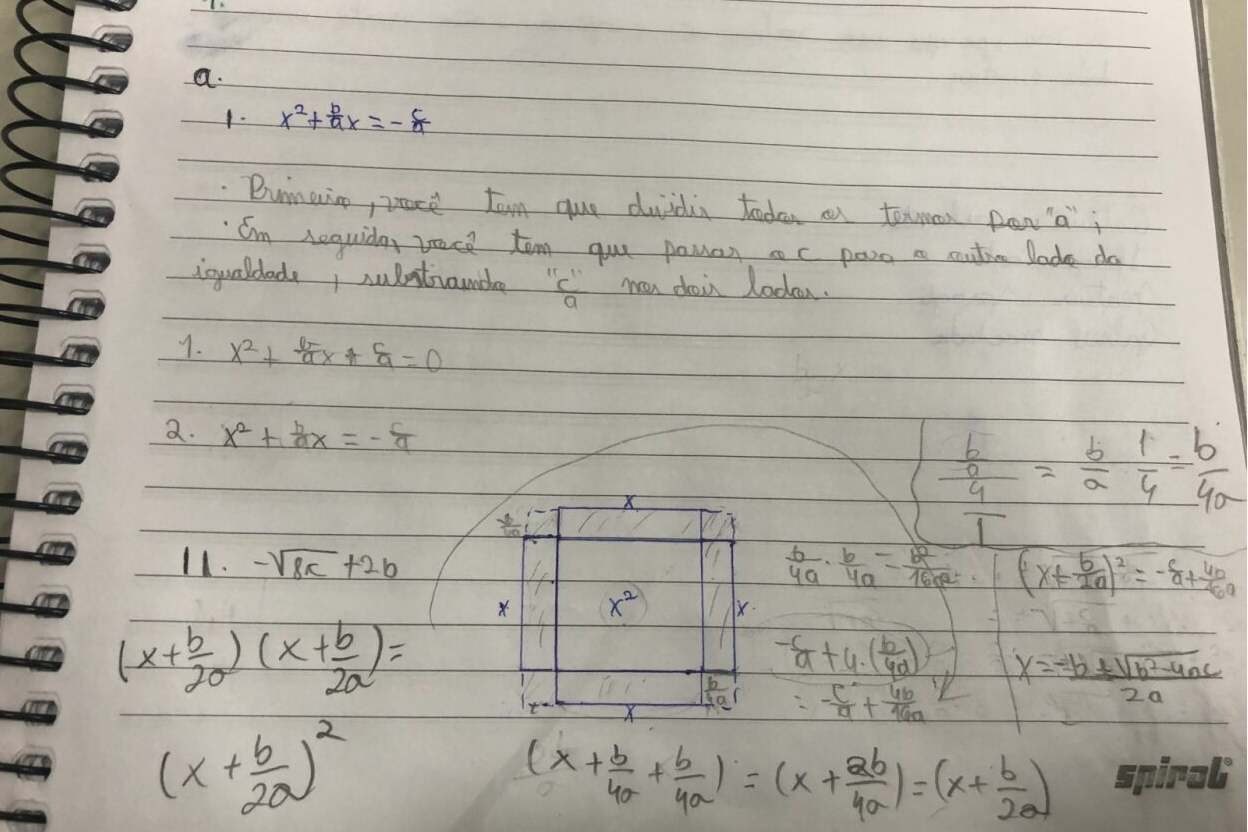 a.
1. x² + b/a x = - c/a
· Primeiro, você tem que dividir todos os termos por "a";
· Em seguida, você tem que passar o c para o outro lado da
igualdade, substraindo "c/a" nos dois lados.
1. x² + b/a x + c/a = 0
2. x² + b/a x = - c/a
b/a / 4/1 = b/a · 1/4 = b/4a
11. -√8x + 2b
x
x
x²
x
x
b/4a
b/4a · b/4a = b²/16a²
(x + b/2a)² = - c/a + 4b/16a
(x + b/2a) (x + b/2a) =
- c/a + 4·(b/4a)
= - c/a + 4b/16a
x = -b ± √b² - 4ac / 2a
(x + b/2a)²
(x + b/4a + b/4a) = (x + 2b/4a) = (x + b/2a)
spiral